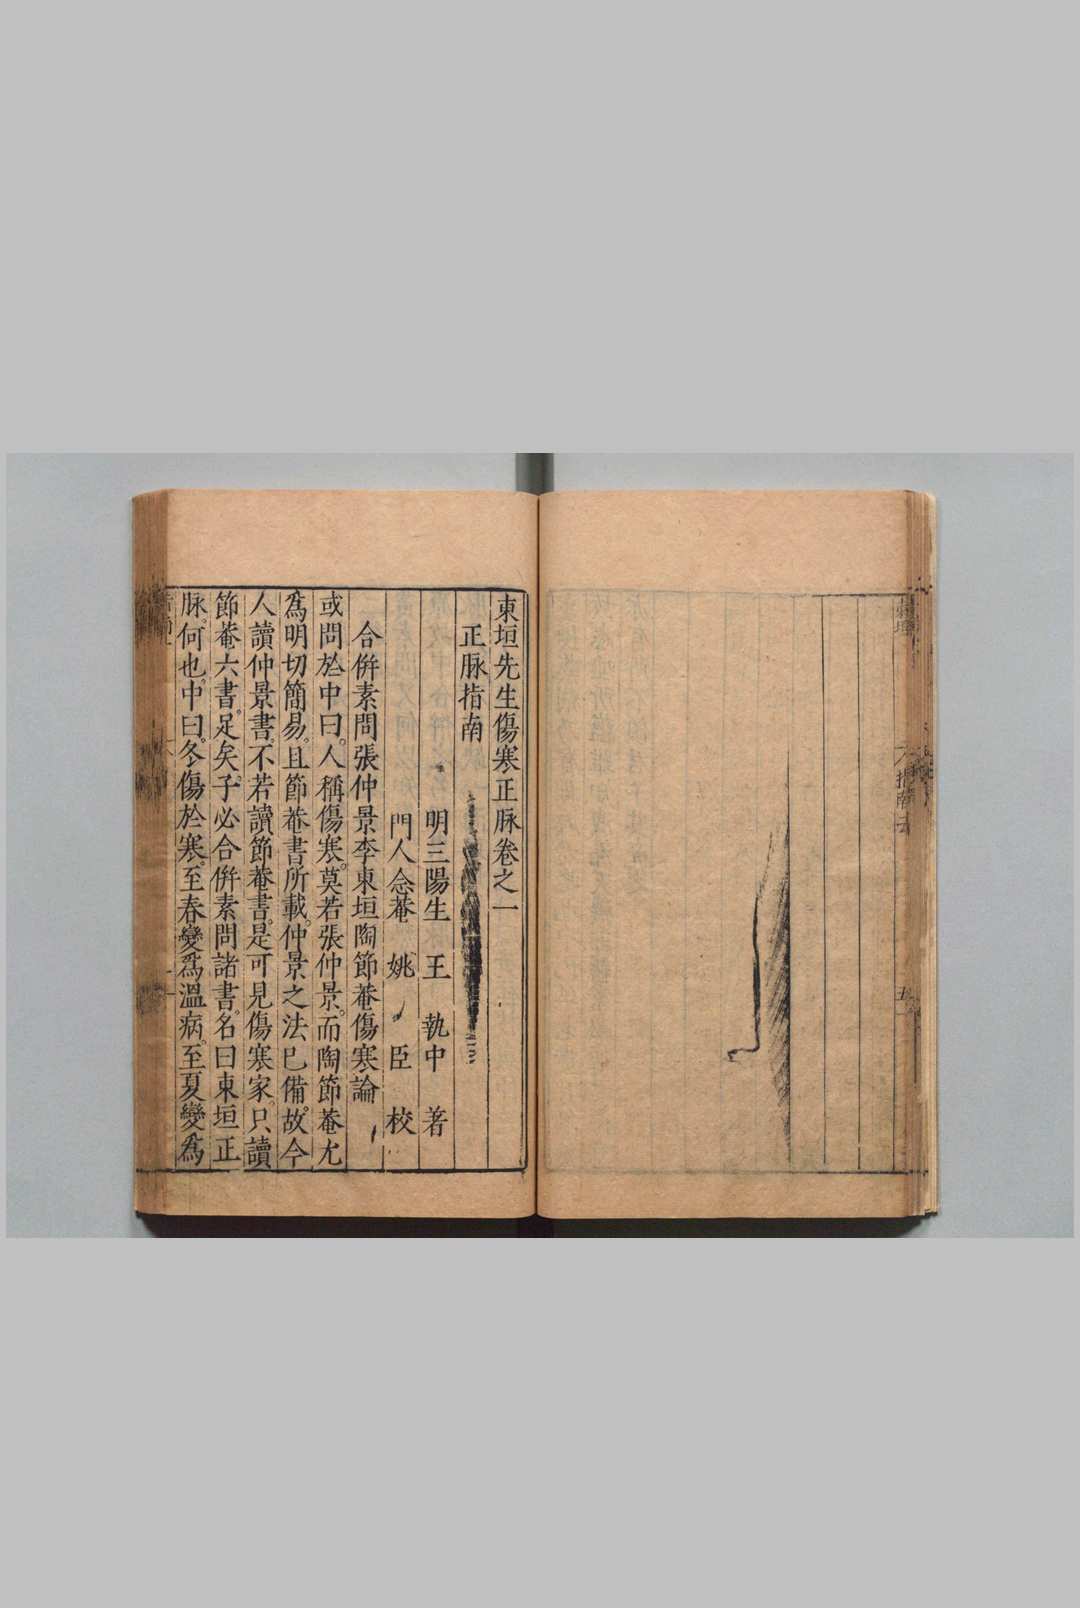 指南
五
東垣先生傷寒正脉卷之一
正脉指南
明三陽生王執中著
門人念菴姚臣校
合倂素問張仲景李東垣陶節菴傷寒論
或問於中曰。人稱傷寒。莫若張仲景。而陶節菴尤
爲明切簡易。且節菴書所載。仲景之法已備。故今
人讀仲景書。不若讀節菴書。是可見傷寒家。只讀
節菴六書。足矣。子必合倂素問諸書。名曰東垣正
脉。何也。中曰。冬傷於寒。至春變爲溫病。至夏變爲